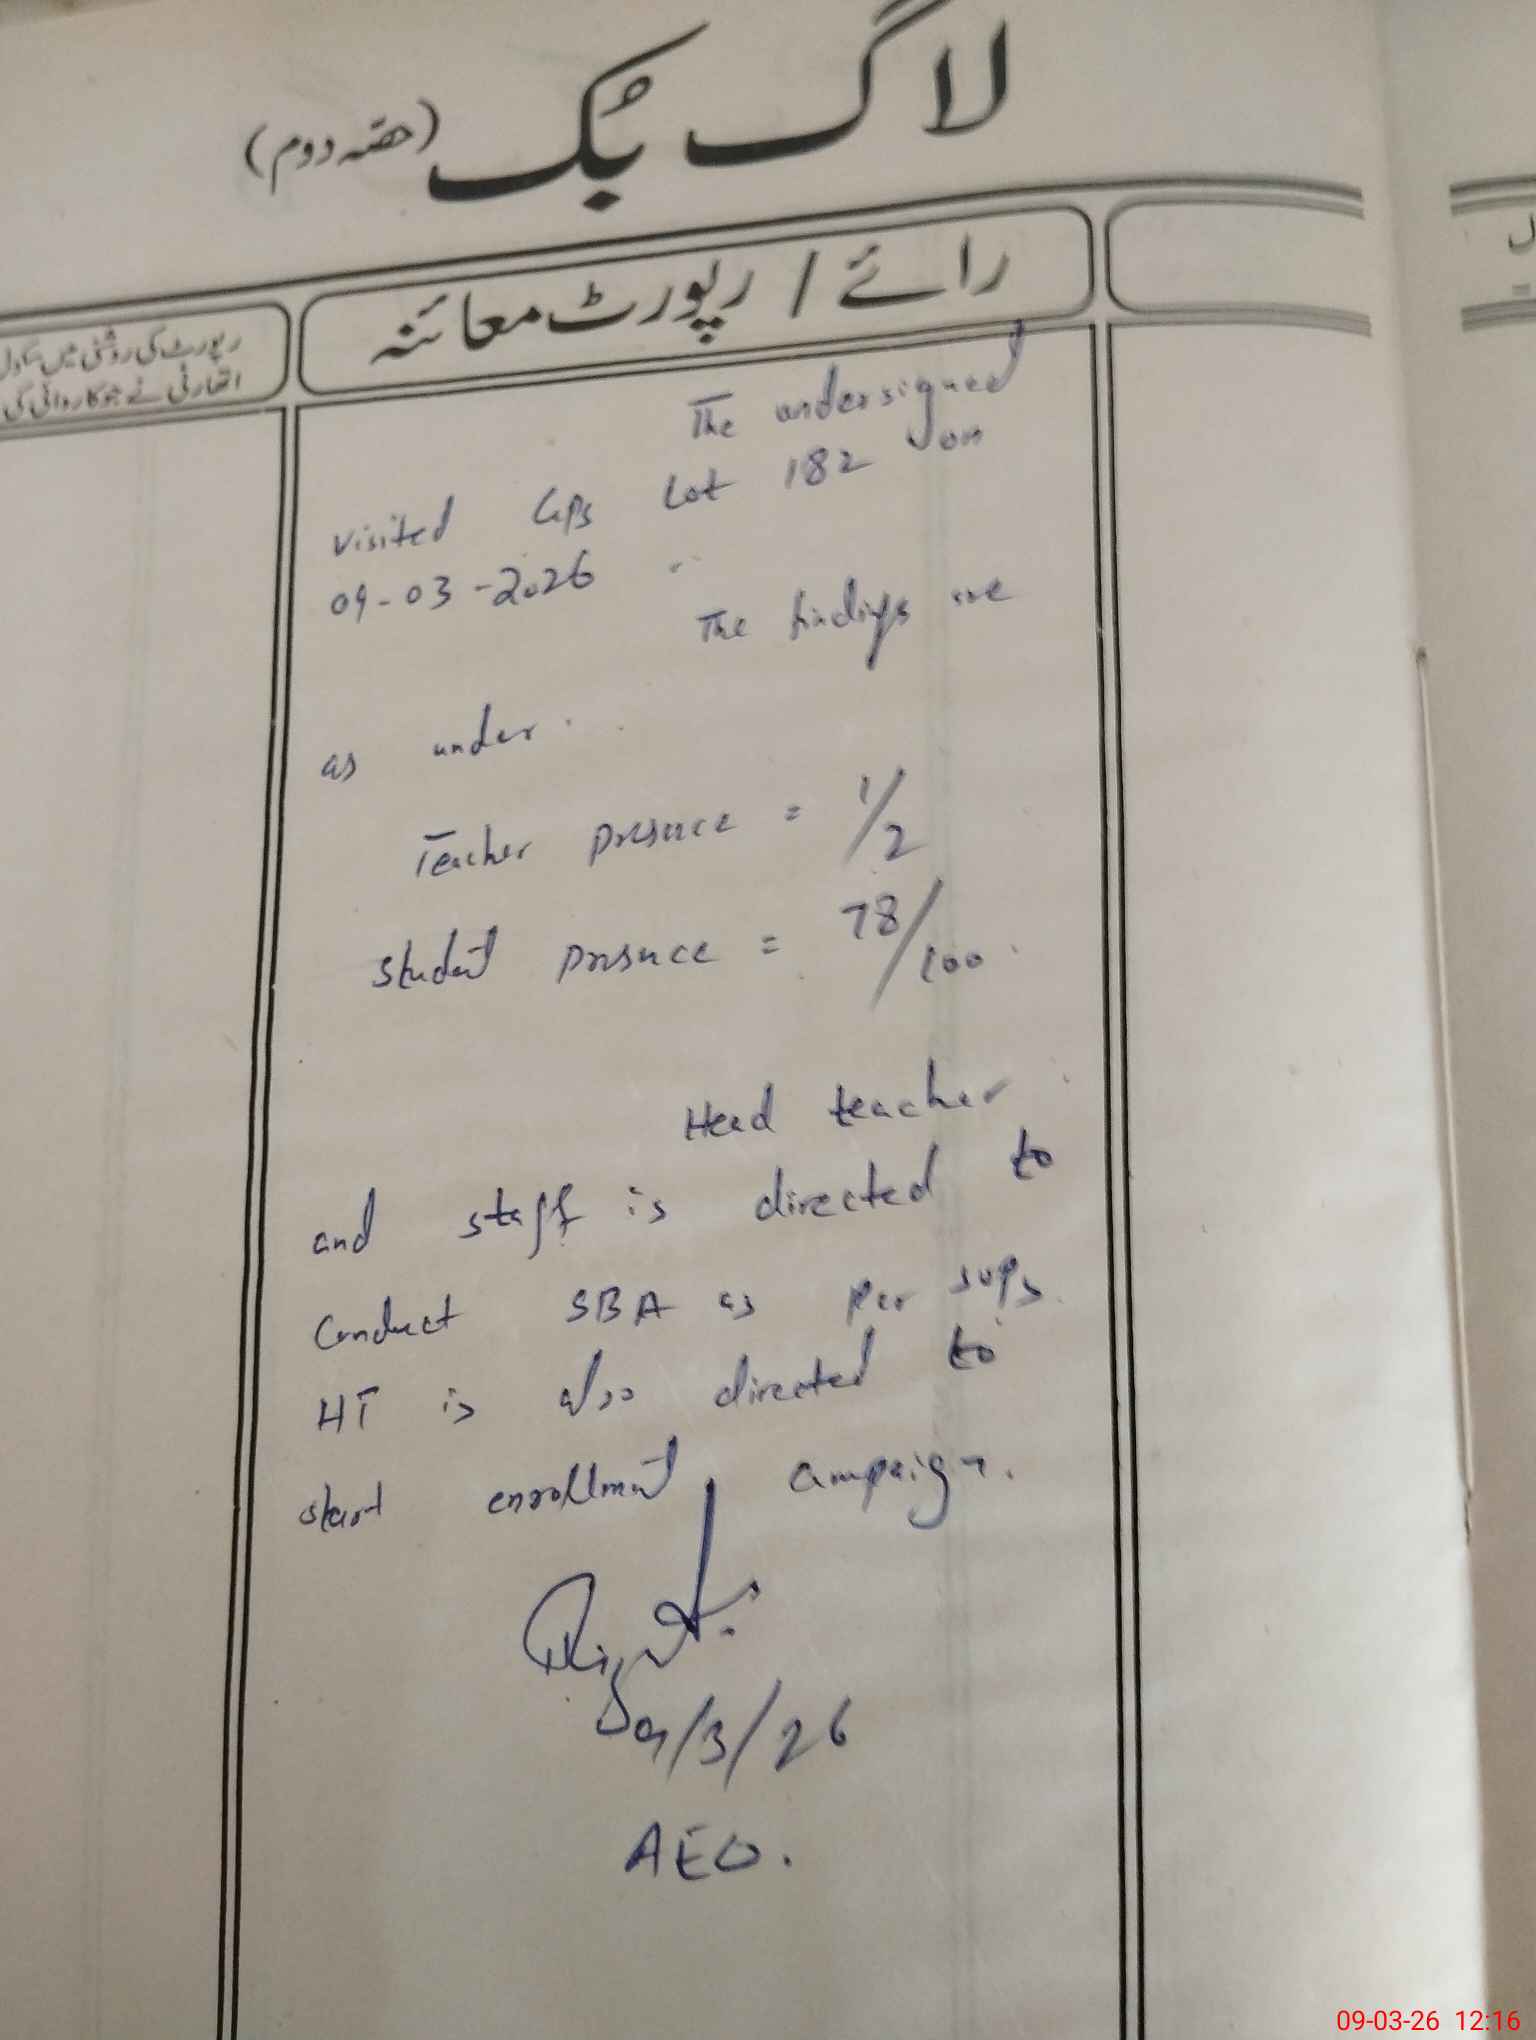 لاگ بُک (حصّہ دوم)
رائے / رپورٹ معائنہ
رپورٹ کی روشنی میں
اتھارٹی نے جو کاروائی کی
The undersigned
visited GPS Lot 182 on
09-03-2026
The findings are
as under.
Teacher presence = 1/2
Student presence = 78/100
Head teacher
and staff is directed to
Conduct SBA as per SOPs
HT is also directed to
start enrollment campaign.
09/3/26
AEO.
09-03-26 12:16